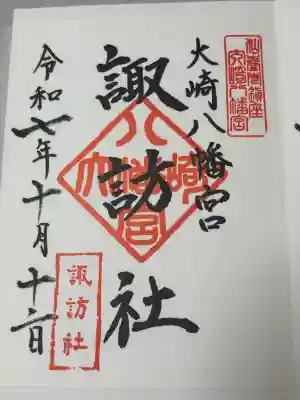 大崎八幡宮
大崎八幡宮
諏訪社
大崎八幡宮
令和七年十月十二日
諏訪社